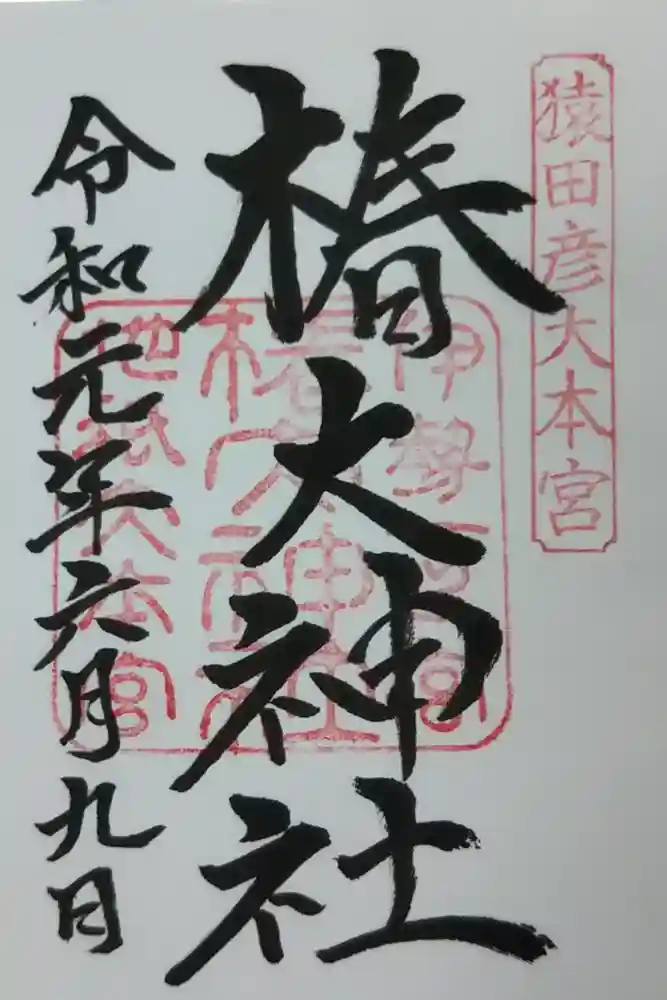 猿田彦大本宮
椿大神社
伊勢一宮
椿大神社
地祇大本宮
令和元年六月九日